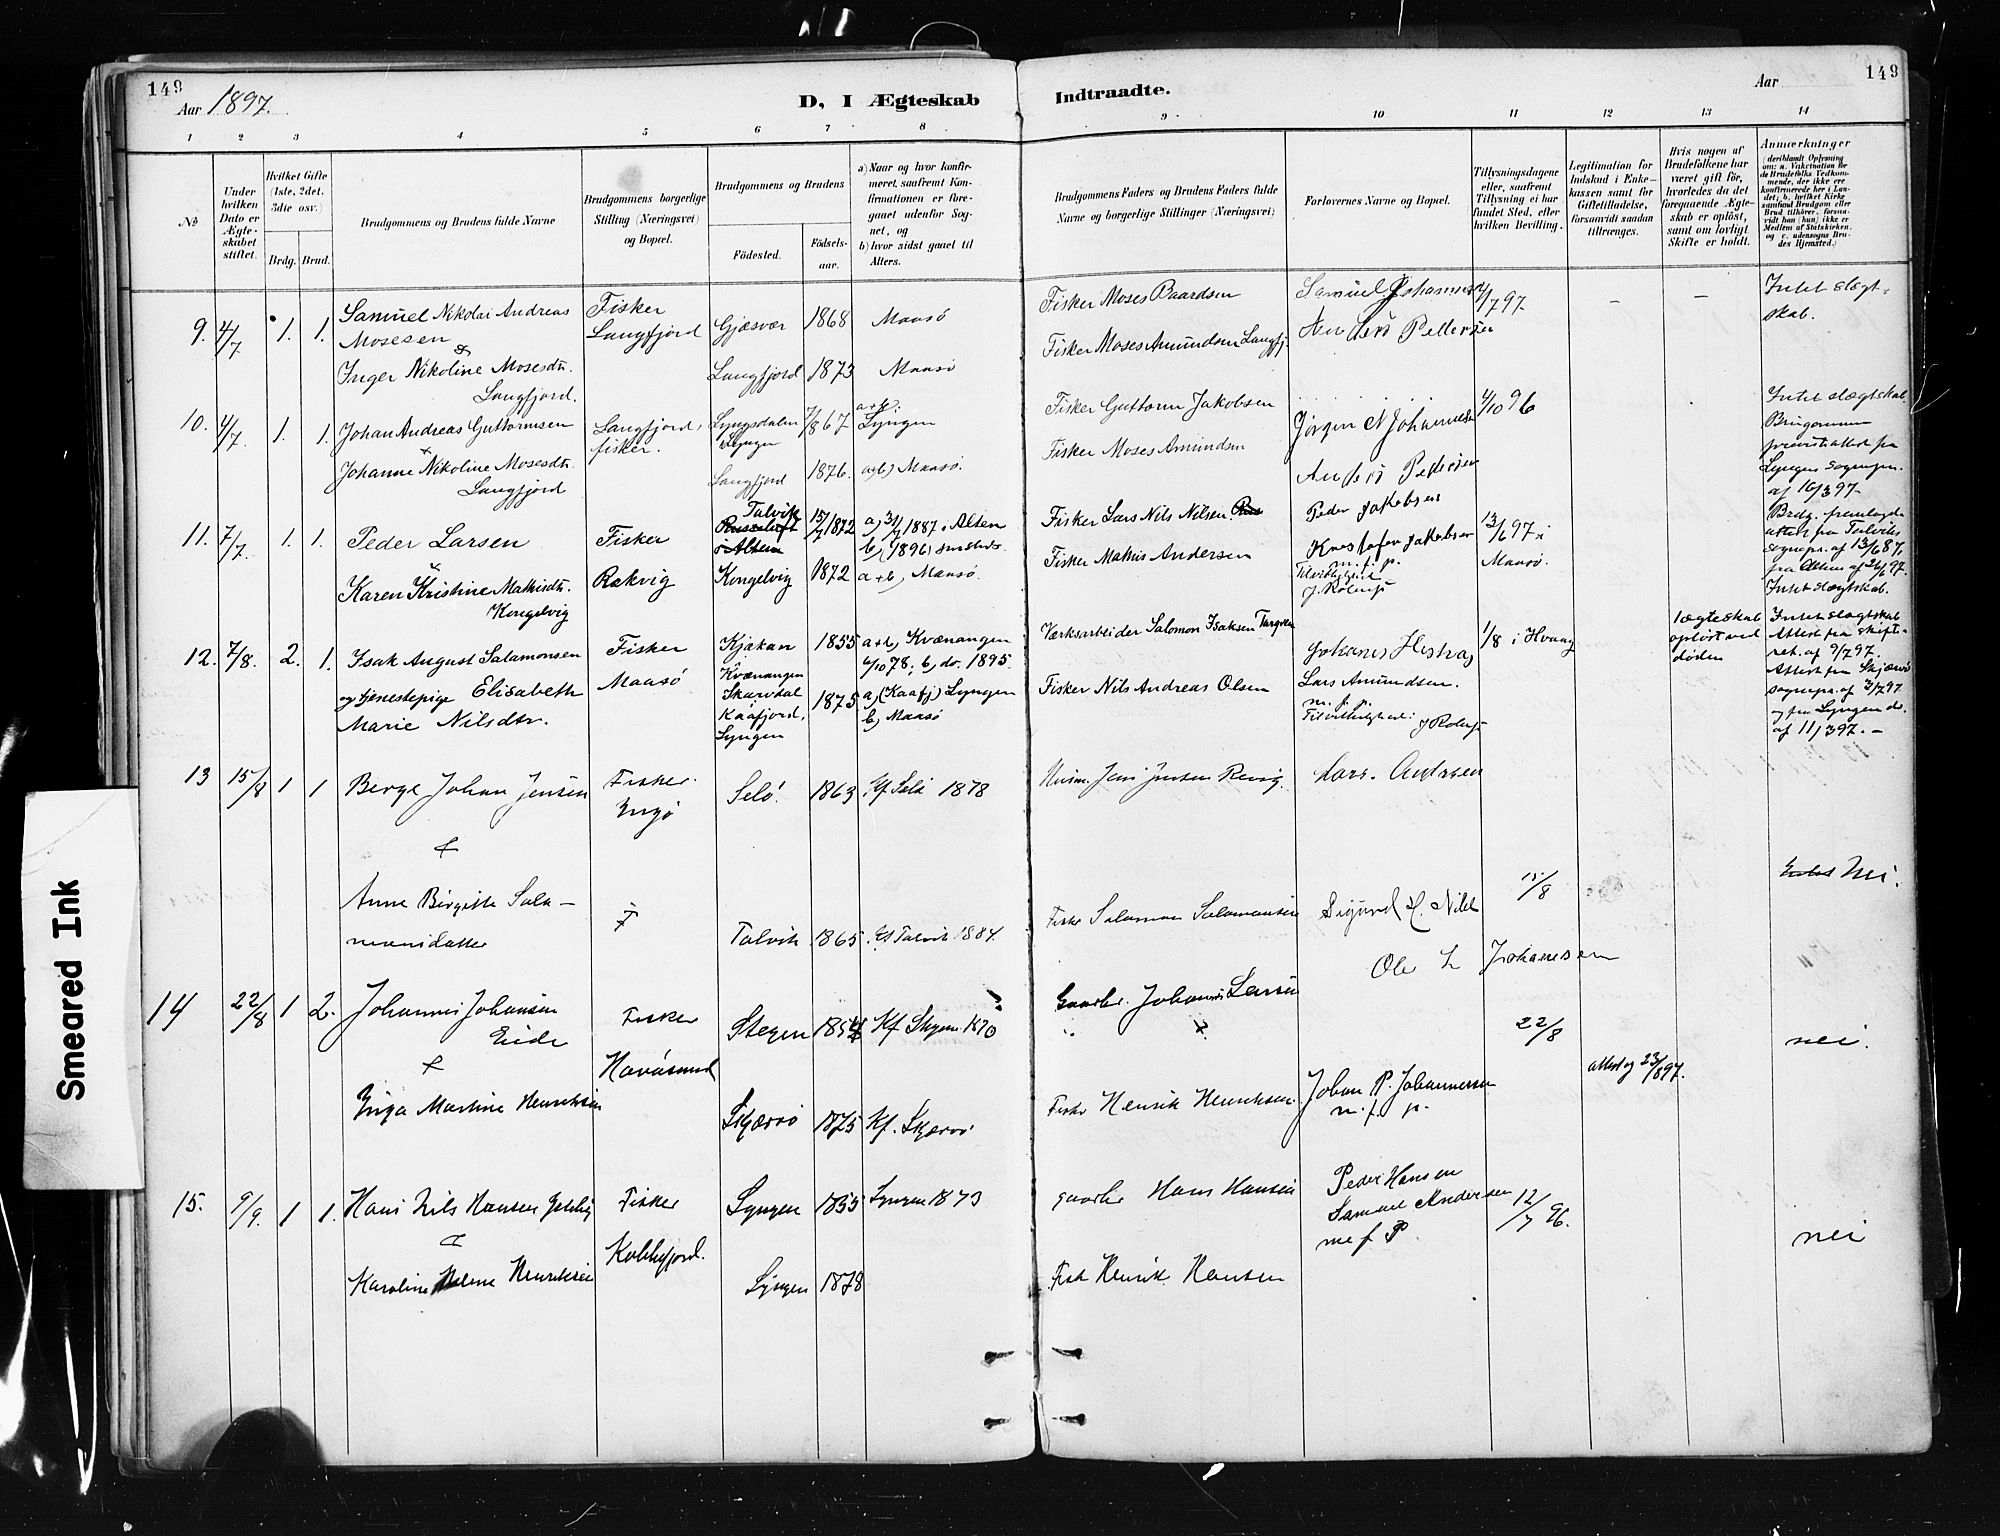 149
149
Aar 1897.
D, I Ægteskab Indtraadte.
Aar
1 2 3 4 5 6 7 8 9 10 11 12 13 14
№
Under hvilken Dato er Ægteskabet stiftet.
Hvilket Gifte (1ste, 2det, 3die osv.)
Brdg.
Brud.
Brudgommens og Brudens fulde Navne
Brudgommens borgerlige Stilling (Næringsvei) og Bopæl.
Brudgommens og Brudens
Födested.
Födsels-aar.
a) Naar og hvor konfirmeret, saafremt Konfirmationen er foregaaet udenfor Sognet, og
b) hvor sidst gaaet til Alters.
Brudgommens Faders og Brudens Faders fulde Navne og borgerlige Stillinger (Næringsvei)
Forlovernes Navne og Bopæl.
Tillysningsdagene eller, saafremt Tillysning ei har fundet Sted, efter hvilken Bevilling.
Legitimation for Indskud i Enkekassen samt for Giftetilladelse, forsaavidt saadan tiltrænges.
Hvis nogen af Brudefolkene har været gift för, hvorledes da det foregaaende Ægteskab er oplöst, samt om lovligt Skifte er holdt.
Anmærkninger
(deriblandt Oplysning om: a. Vakcination for de Brudefolks Vedkommende, der ikke ere konfirmerede her i Landet; b. hvilket Kirkesamfund Brudgom eller Brud tilhörer, forsaavidt han (hun) ikke er Medlem af Statskirken, og c. udensogns Brudes Hjemsted.)
9. 4/7 1. 1. Samuel Nikolai Andreas Mosesen
&
Inger Nikoline Mosesdtr. Langfjord.
Fisker Langfjord
Gjæsvær 1868 Maasö
Langfjord 1873 Maasö
Fisker Moses Baardsen
Fisker Moses Amundsen Langfj
Samuel Johannes
Anders Pedersen
4/7 97.
–
–
Intet slægtskab.
10. 4/7 1. 1. Johan Andreas Guttormsen
Johanne Nikoline Mosesdtr. Langfjord
Langfjord, fisker.
Lyngsdalen Lyngen 7/8 67 a+b. Lyngen
Langfjord 1876. a+b) Maasö.
Fisker Guttorm Jakobsen
Fisker Moses Amundsen
Jörgen N Johannesen
Anders Pedersen
4/10 96
Intet slægtskab.
Brugommen
attest fra
Lyngens Sognepr.
af 16/3 97.
11. 7/7. 1. 1. Peder Larsen
&
Karen Kristine Mathisdtr. Kongelvig
Fisker
Rækvig
Talvik
Alten
15/7 1872 a) 3/7 1887 i Alten
b) (1896) smsteds.
Kongelvig 1872 a+b) Maasö.
Fisker Lars Nils Nilsen
Fisker Mathis Andersen
Peder Jakobsen
Kristofer Jakobsen
m. f. p.
13/6 97 i
Maasö.
Brdg. fremlagde
attest fra Talviks
Sognepr. af 13/6 87,
fra Alten af 26/6 97.
Intet slægtskab.
12. 7/8. 2. 1. Isak August Salamonsen
og tjenestepige Elisabeth
Marie Nilsdtr.
Fisker
Maasö
Kjækan Kvænangen 1855 a+b) Kvænangen
6/10 78; b) do. 1895.
Skardal Kaafjord, Lyngen 1875 a) (Kaafj) Lyngen
b) Maasö
Værksarbeider Salomon Isaksen
Fisker Nils Andreas Olsen
Lars Amundsen.
m. f. p.
1/8 i Hvaag
1 ægteskab
oplöst ved
döden
Intet slægtskab
Attest fra skifteret. af 9/7 97.
Attest fra Skjærvö
sognepr. af 3/7 97
og fra Lyngen do.
af 11/3 97.–
13 15/8 1 1 Berge Johan Jensen
&
Anne Birgitte Salamonsdatter
Fisker.
Ingö
Selö. 1863 1878
Talvik 1865 Kf Talvik 1884.
Husm. Jens Jensen
Fisker Salamon Salamonsen
Lars. Andrsen
15/8
Nei.
Ole L Johansen
14 22/8 1 2. Johannes Johansen Eide
&
Inga Martine Henriksen
Fisker
Havösund
Stegen 1854 Kf Stegen 1870
Skjærvö 1875 Kf. Skjærvö
Gaardbr. Johannes Larsen
Fisker Henrik Henriksen
Johan P. Johannessen
m. f. p.
22/8
attest og 23/8 97.
nei.
15. 9/9. 1 1. Hans Nils Hansen
&
Karoline Helene Henriksen
Fisker
Kobbefjord.
Lyngen 1855 Lyngen 1873
Lyngen 1878
gaardbr Hans Hansen
Fisk Henrik Hansen
Peder Hansen
Samuel Andersen
me f P
12/7 96.
nei
Smeared Ink